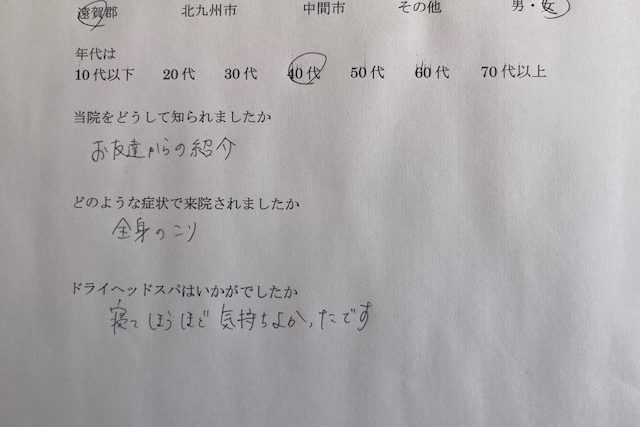 遠賀郡 北九州市 中間市 その他 男・女
年代は
10代以下 20代 30代 40代 50代 60代 70代以上
当院をどうして知られましたか
お友達からの紹介
どのような症状で来院されましたか
全身のこり
ドライヘッドスパはいかがでしたか
寝てしまうほど気持ちよかったです